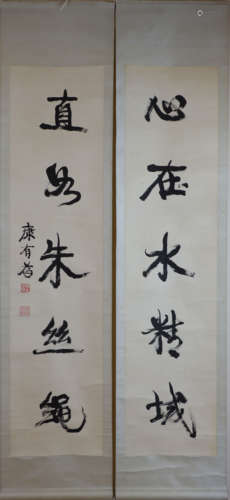 心在水精域
直如朱丝绳
康有为